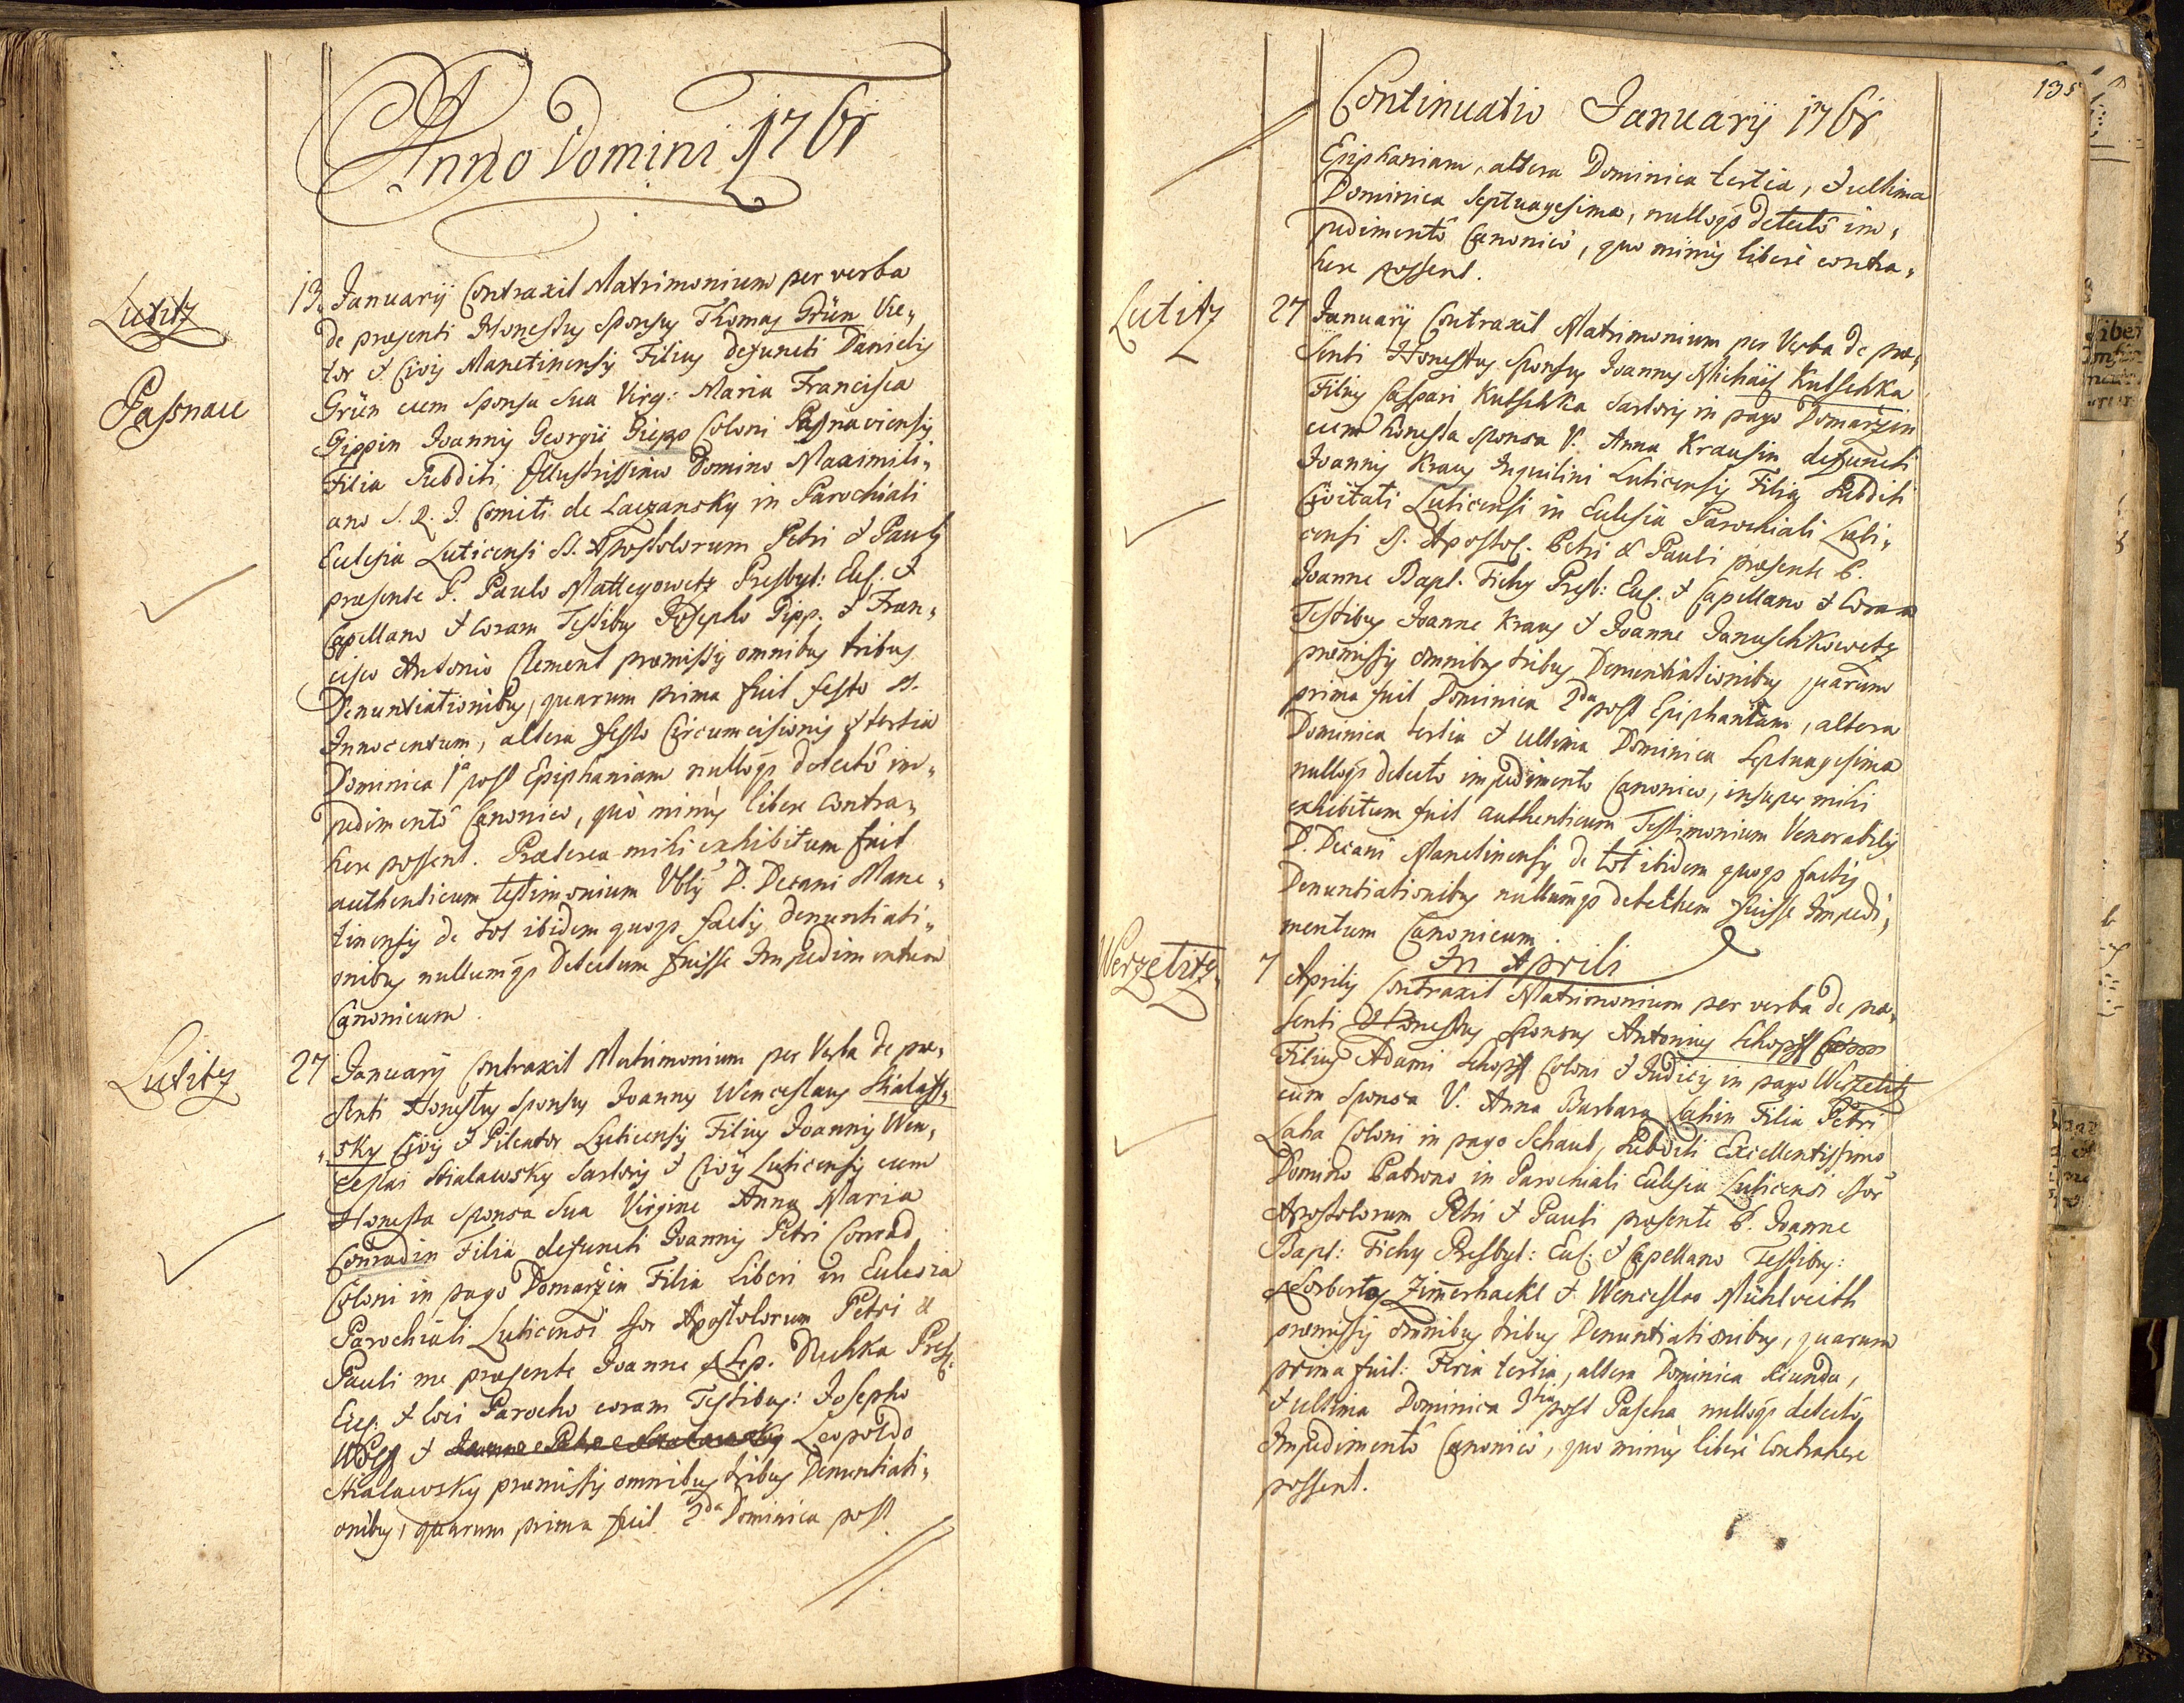 Anno Domini 1761
Lutitz
Pasnau
13. Januarij Contraxit Matrimonium per verba
de præsenti Honestus Sponsus Thomas Grün Vie,,
tor & Civis Manetinensis Filius defuncti Danielis
Grün cum Sponsa Sua Virg: Maria Francisca
Gippin Joannis Georgii Giepp Coloni Pasnaviensis
Filia Subditi Illustrissimo Domino Maximili,,
ano S. R. I. Comiti de Laczansky in Parochiali
Ecclesia Luticensi SS. Apostolorum Petri & Pauli
præsente P. Paulo Mattegowetz Presbyt: Eccl. &
Capellano & coram Testibus Josepho Gipp. & Fran,,
cisco Antonio Clement præmissis omnibus tribus
Denuntiationibus, quarum prima fuit festo SS.
Innocentum, altera festo Circumcisionis & tertia
Dominica 1a post Epiphaniam nulloq3 detectô im,,
pedimentô Canonico, quò minùs libere contra,,
here possent. Præterea mihi exhibitum fuit
authenticum testimonium Vblis D. Decani Mane,,
tinensis de tot ibidem quoq3 factis denuntiati,,
onibus nullumq3 detectum fuisse Impedimentum
Canonicum.
Lutitz
27 Januarij Contraxit Matrimonium per Verba de præ,,
senti Honestus Sponsus Joannes Wenceslaus Skalaw,,
,,sky Civis & Pileator Luticensis Filius Joannis Wen,,
ceslai Skalawsky Sartoris & Civis Luticensis cum
Honesta Sponsa Sua Virgine Anna Maria
Conradin Filia defuncti Joannis Petri Conrad
Coloni in pago Domarzin Filia Liberi in Ecclesia
Parochiali Luticensi SSor Apostolorum Petri &
Pauli me præsente Joanne Nep. Nuhka Presb:
Eccl. & loci Parocho coram Testibus: Josepho
Wolf & Leopoldo
Skalawsky præmissis omnibus tribus Denuntiati,,
onibus, quarum prima fuit 2da Dominica post
135
Continuatio Januarij 1761
Epiphaniam, altera Dominica tertia, & ultima
Dominica Septuagesima, nulloq3 detectô im,,
pedimentô Canonicô, quo minùs liberè contra,,
here possent.
Lutitz
27 Januarij Contraxit Matrimonium per Verba de præ,,
senti Honestus Sponsus Joannes Michäis Kutschka
Filius Caspari Kutschka Sartoris in pago Domarzin
cum honesta Sponsa V. Anna Krausin defuncti
Joannis Kraus Inquilini Luticensis Filia Subditi
Civitati Luticensi in Ecclesia Parochiali Luti,,
censi SS. Apostol. Petri & Pauli præsente P.
Joanne Bapt. Tichy Presb: Eccl. & Capellano & Coram
Testibus Joanne Kraus & Joanne Januschkowetz
præmissis omnibus tribus Denuntiationibus quarum
prima fuit Dominica 2da post Epiphaniam, altera
Dominica tertia & ultima Dominica Septuagesima
nulloq3 detecto impedimento Canonico, insuper mihi
exhibitum fuit authenticum Testimonium Venerabilis
D. Decani Manetinensis de tot ibidem quoq3 factis
Denuntiationibus nullumq3 detectum fuisse Impedi,,
mentum Canonicum.
In Aprili
Werzetitz.
7 Aprilis Contraxit Matrimonium per verba de præ,,
senti Honestus Sponsus Antonius Schopff
Filius Adami Schopff Coloni & Judicis in pago Werzetitz
cum Sponsa V. Anna Barbara Lahin Filia Petri
Laha Coloni in pago Schaub, Subditi Excellentissimo
Domino Patrono in Parochiali Ecclesia Luticensi SSor
Apostolorum Petri & Pauli præsente P. Joanne
Bapt: Tichy Presbyt: Eccl: & Capellano Testibus:
Norberto Zim̄erhackl & Wenceslao Mühlveith
præmissis omnibus tribus Denuntiationibus, quarum
prima fuit: Feria tertia, altera Dominica secunda,
& ultima Dominica 3tia post Pascha nulloq3 detectô
Impedimentô Canonicô, quo minùs liberè Contrahere
possent.